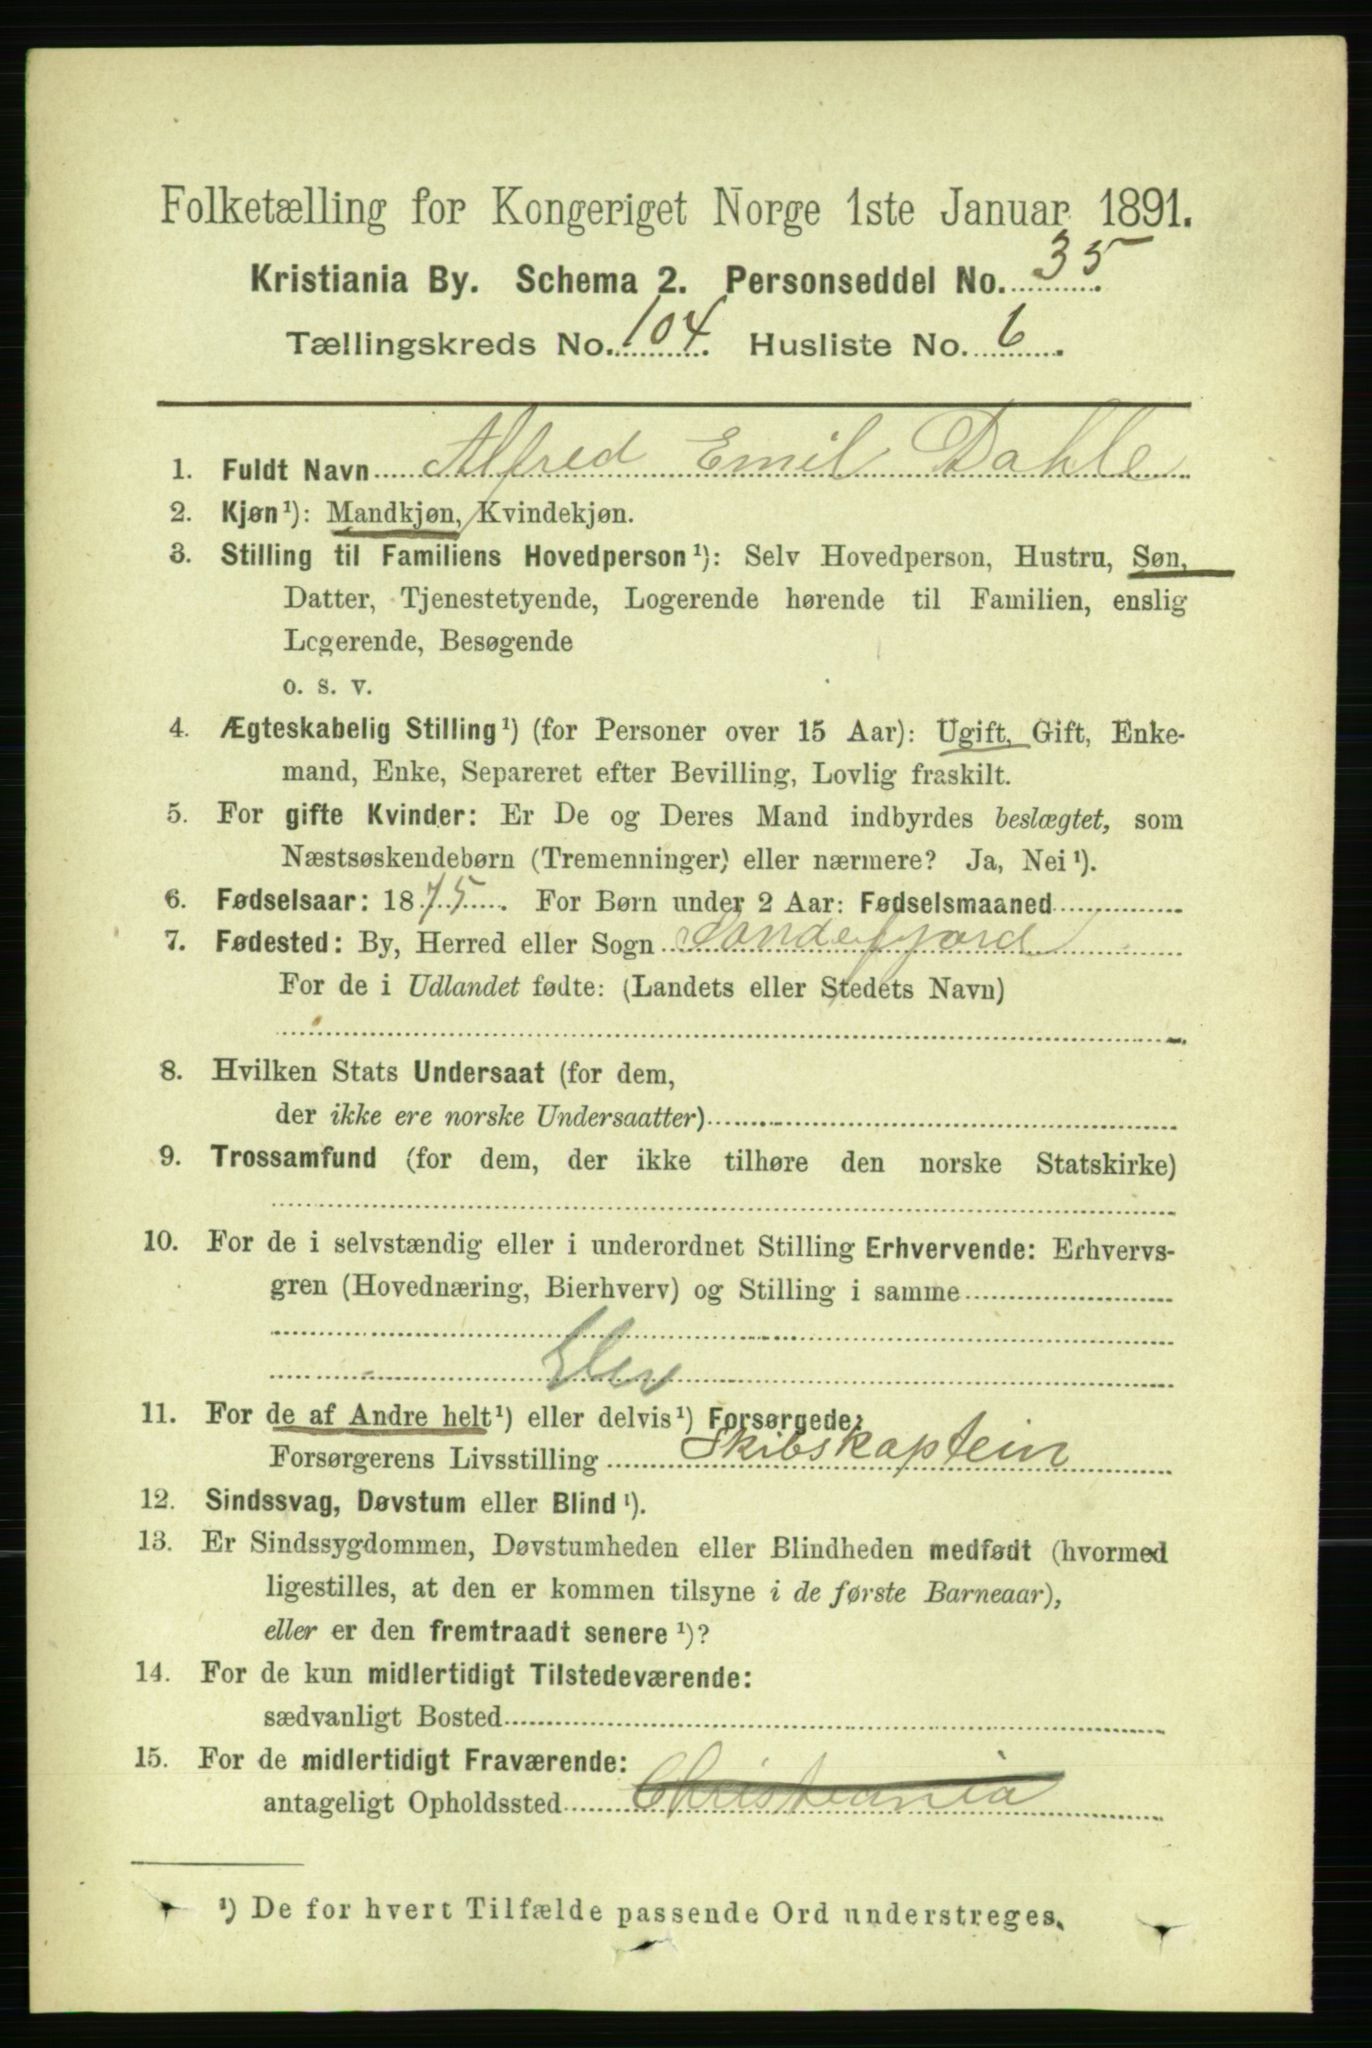 Folketælling for Kongeriget Norge 1ste Januar 1891.
Kristiania By. Schema 2. Personseddel No. 35
Tællingskreds No. 104. Husliste No. 6.
1. Fuldt Navn Alfred Emil Dahle
2. Kjøn¹): Mandkjøn, Kvindekjøn.
3. Stilling til Familiens Hovedperson¹): Selv Hovedperson, Hustru, Søn,
Datter, Tjenestetyende, Logerende hørende til Familien, enslig
Logerende, Besøgende
o. s. v.
4. Ægteskabelig Stilling¹) (for Personer over 15 Aar): Ugift, Gift, Enke-
mand, Enke, Separeret efter Bevilling, Lovlig fraskilt.
5. For gifte Kvinder: Er De og Deres Mand indbyrdes beslægtet, som
Næstsøskendebørn (Tremenninger) eller nærmere? Ja, Nei¹).
6. Fødselsaar: 1875. For Børn under 2 Aar: Fødselsmaaned
7. Fødested: By, Herred eller Sogn Sandefjord
For de i Udlandet fødte: (Landets eller Stedets Navn)
8. Hvilken Stats Undersaat (for dem,
der ikke ere norske Undersaatter)
9. Trossamfund (for dem, der ikke tilhøre den norske Statskirke)
10. For de i selvstændig eller i underordnet Stilling Erhvervende: Erhvervs-
gren (Hovednæring, Bierhverv) og Stilling i samme
Elev
11. For de af Andre helt¹) eller delvis¹) Forsørgede:
Forsørgerens Livsstilling Skibskaptein
12. Sindssvag, Døvstum eller Blind¹).
13. Er Sindssygdommen, Døvstumheden eller Blindheden medfødt (hvormed
ligestilles, at den er kommen tilsyne i de første Barneaar),
eller er den fremtraadt senere¹)?
14. For de kun midlertidigt Tilstedeværende:
sædvanligt Bosted
15. For de midlertidigt Fraværende:
antageligt Opholdssted Christiania
¹) De for hvert Tilfælde passende Ord understreges.